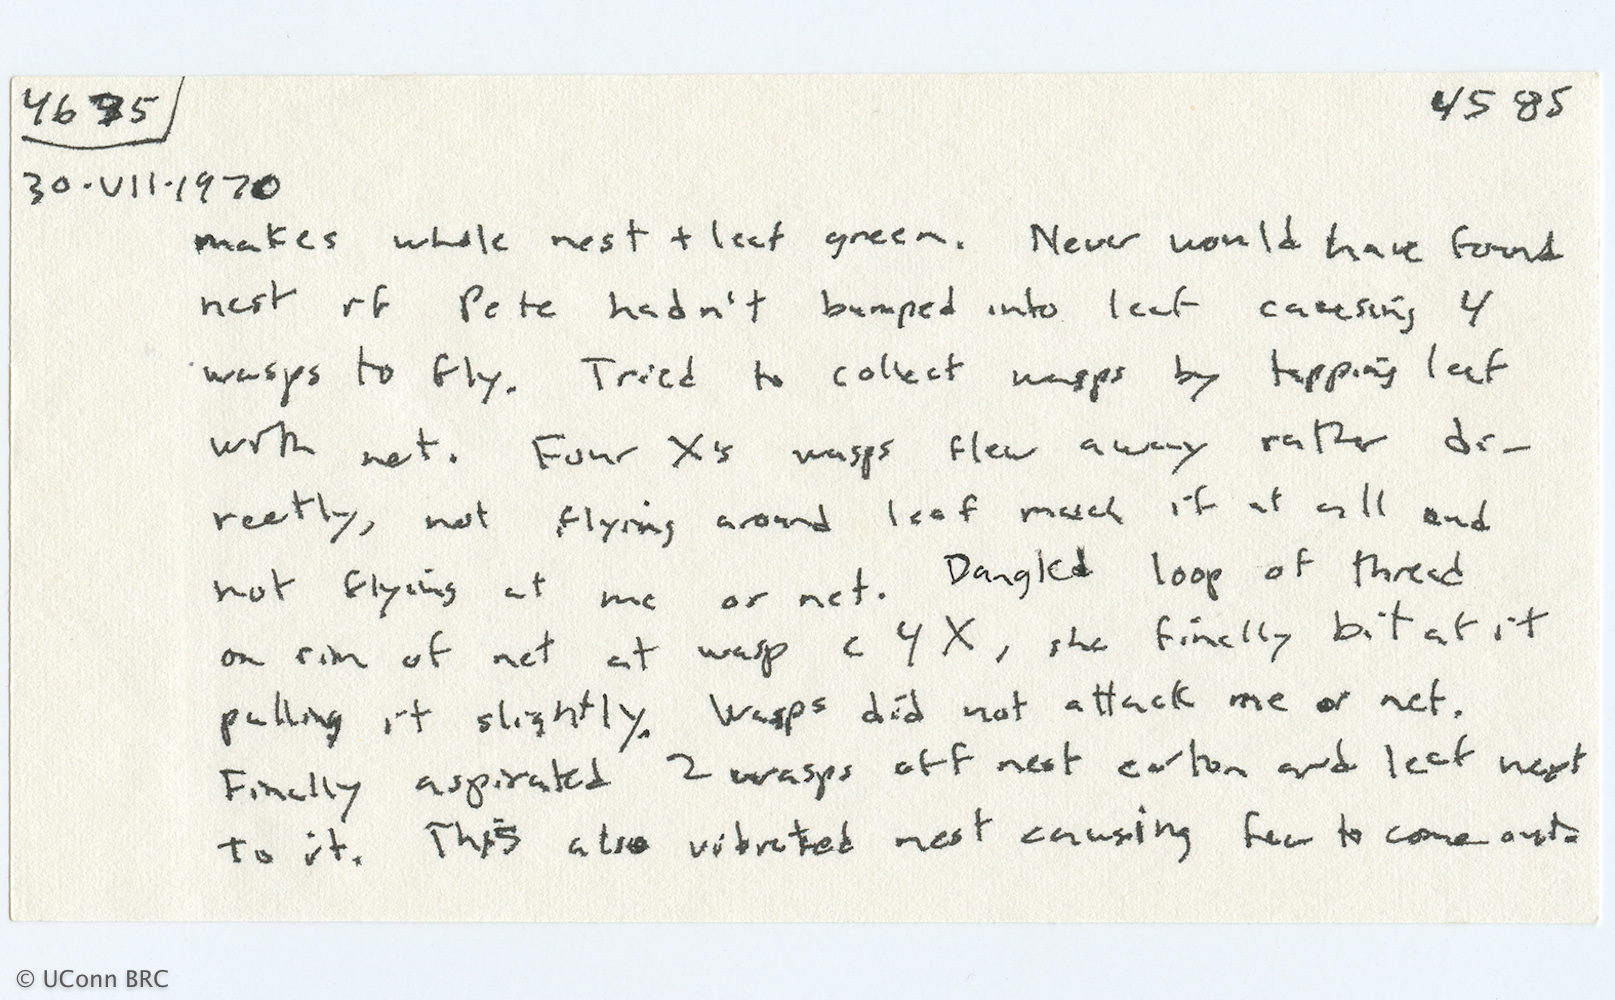 4675
4585
30.VII.1970
makes whole nest + leaf green. Never would have found
nest if Pete hadn't bumped into leaf causing 4
wasps to fly. Tried to collect wasps by tapping leaf
with net. Four X's wasps flew away rather di-
rectly, not flying around leaf much if at all and
not flying at me or net. Dangled loop of thread
on rim of net at wasp c 4 X, she finally bit at it
pulling it slightly. Wasps did not attack me or net.
Finally aspirated 2 wasps off nest carton and leaf next
to it. This also vibrated nest causing few to come out.
© UConn BRC